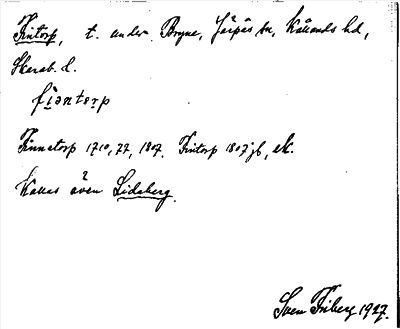 Fintorp, t. under Bryne, Järpås sn, Kållands hd,
Skarab. l.
fi̱ǝnto̱rp
Finnatorp 1710, 77, 1807. Fintorp 1807 jb, ek.
Kallas även Lidaberg.
Sven Friberg 1927.